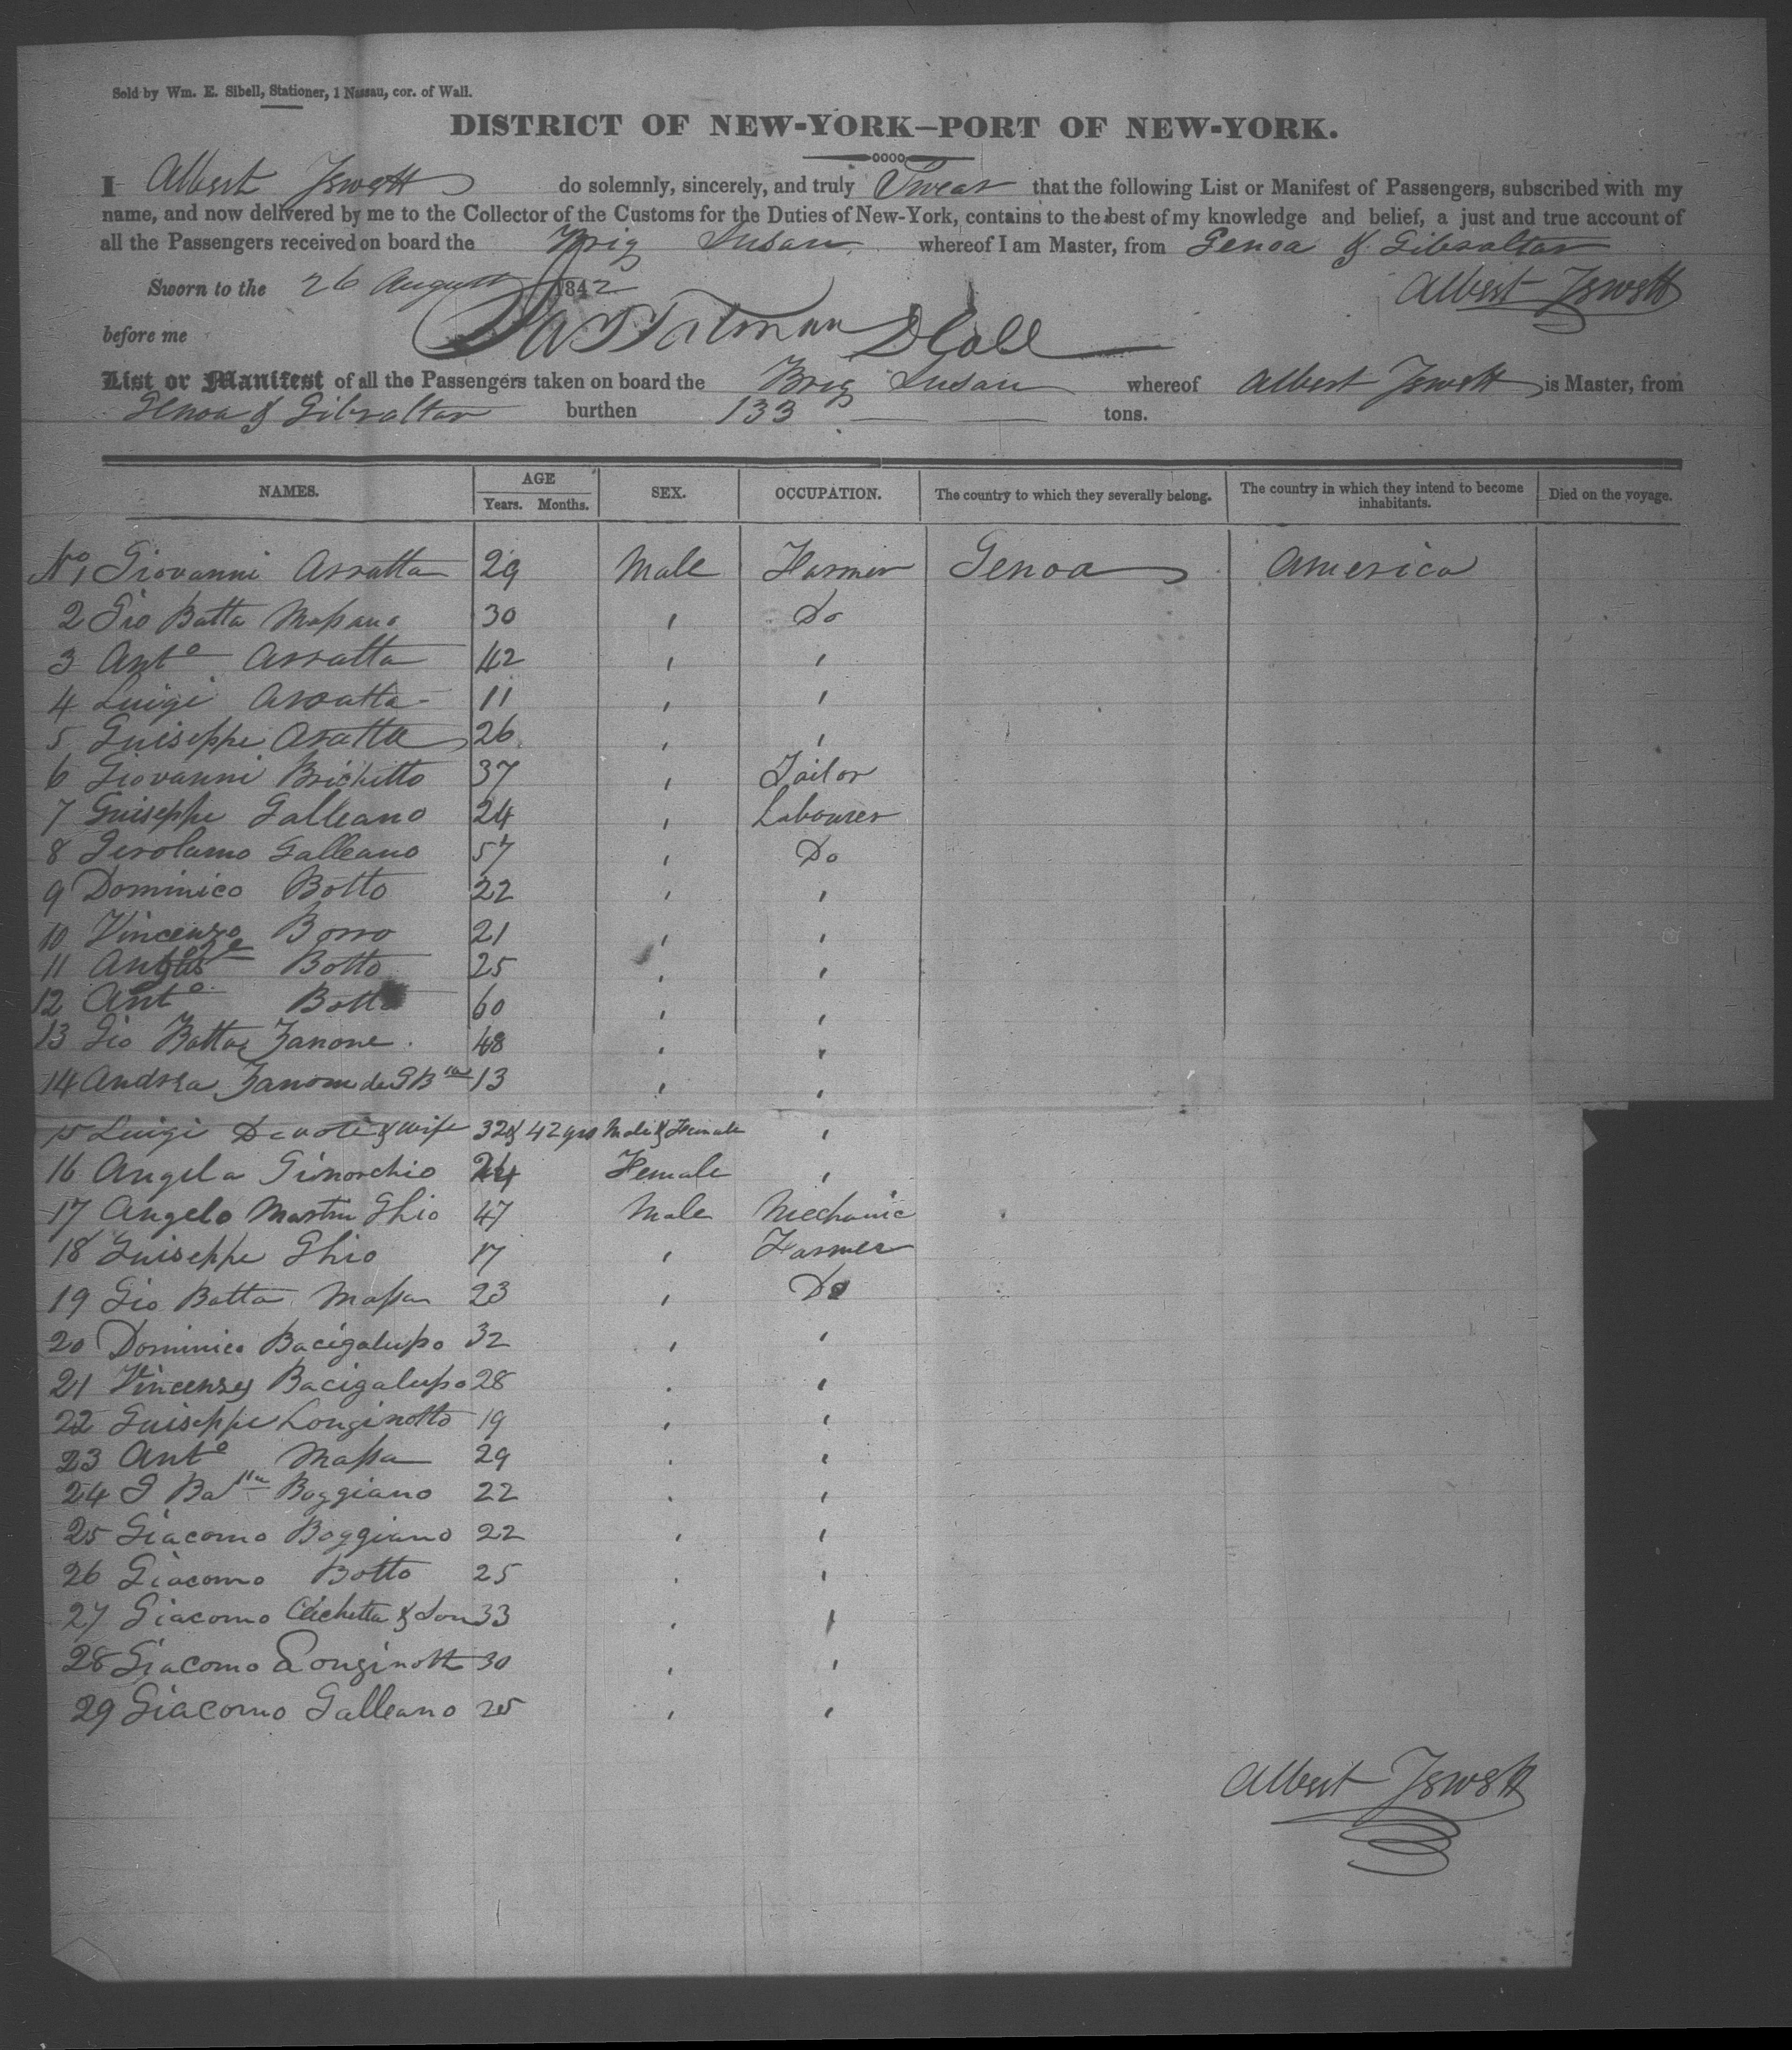 Sold by Wm. E. Sibell, Stationer, 1 Nassau, cor. of Wall.
DISTRICT OF NEW-YORK—PORT OF NEW-YORK.
I Albert Jewett do solemnly, sincerely, and truly Swear that the following List or Manifest of Passengers, subscribed with my
name, and now delivered by me to the Collector of the Customs for the Duties of New-York, contains to the best of my knowledge and belief, a just and true account of
all the Passengers received on board the Brig Susan whereof I am Master, from Genoa & Gibraltar
Sworn to the 26 August 1842 Albert Jewett
before me D Coll
List or Manifest of all the Passengers taken on board the Brig Susan whereof Albert Jewett is Master, from
Genoa & Gibraltar burthen 133 tons.
NAMES. AGE Years. Months. SEX. OCCUPATION. The country to which they severally belong. The country in which they intend to become inhabitants. Died on the voyage.
No 1 Giovanni Arratta 29 Male Farmer Genoa America
2 Gio Batta 30 " Do
3 Anto Arratta 42 " "
4 Luigi Aratta 11 " "
5 Guiseppe Aratta 26 " "
6 Giovanni Brichetto 37 " Tailor
7 Guiseppe Galleano 24 " Labourer
8 Gerolamo Galleano 57 " Do
9 Dominico Botto 22 " "
10 Vincenzo Borro 21 " "
11 Botto 25 " "
12 Anto Botto 60 " "
13 Gio Batta Zanone 48 " "
14 Andrea Zanone de GBta 13 " "
15 Luigi Devoti & wife 32 & 42 yrs Male & Female "
16 Angela Ginorchio 24 Female "
17 Angelo Martin Ghio 47 Male Mechanic
18 Guiseppe Ghio 17 " Farmer
19 Gio Batta Massa 23 " Do
20 Dominico Bacigalupo 32 " "
21 Bacigalupo 28 " "
22 Guiseppe Longinotto 19 " "
23 Anto Massa 29 " "
24 G Batta Boggiano 22 " "
25 Giacomo Boggiano 22 " "
26 Giacomo Botto 25 " "
27 Giacomo & Son 33 " "
28 Giacomo Longinotti 30 " "
29 Giacomo Galleano 25 " "
Albert Jewett